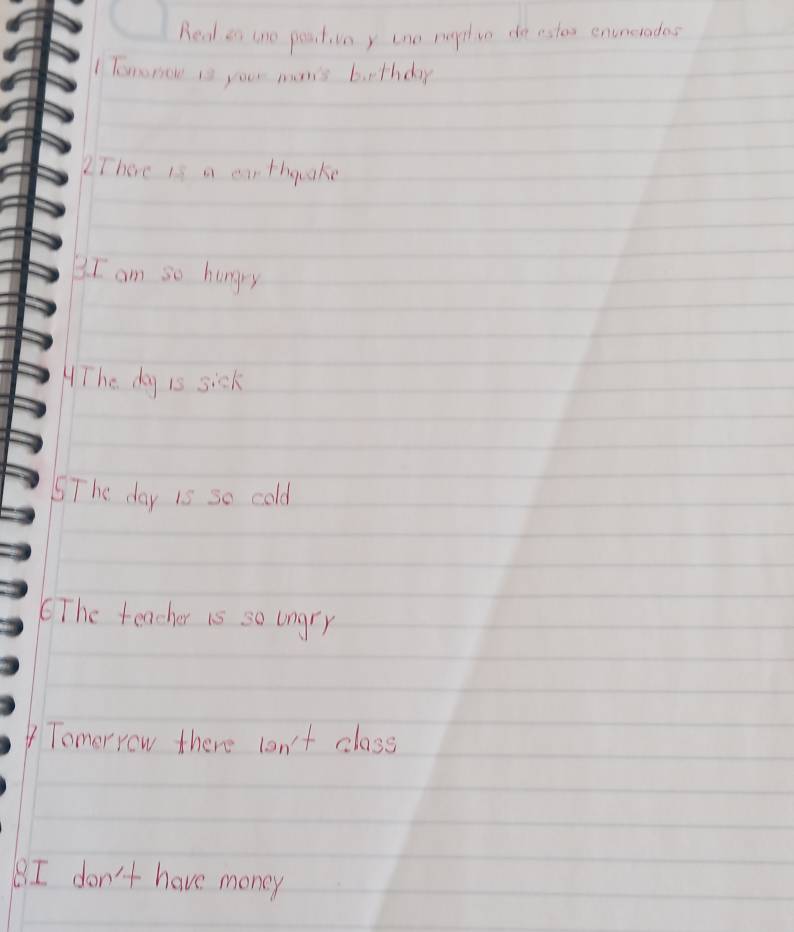 Realiza uno positivo y uno negativo de estos enunciados
1 Tomorrow is your mom's birthday
2 There is a earthquake
3 I am so hungry
4 The dog is sick
5 The day is so cold
6 The teacher is so ungry
7 Tomorrow there isn't class
8 I don't have money